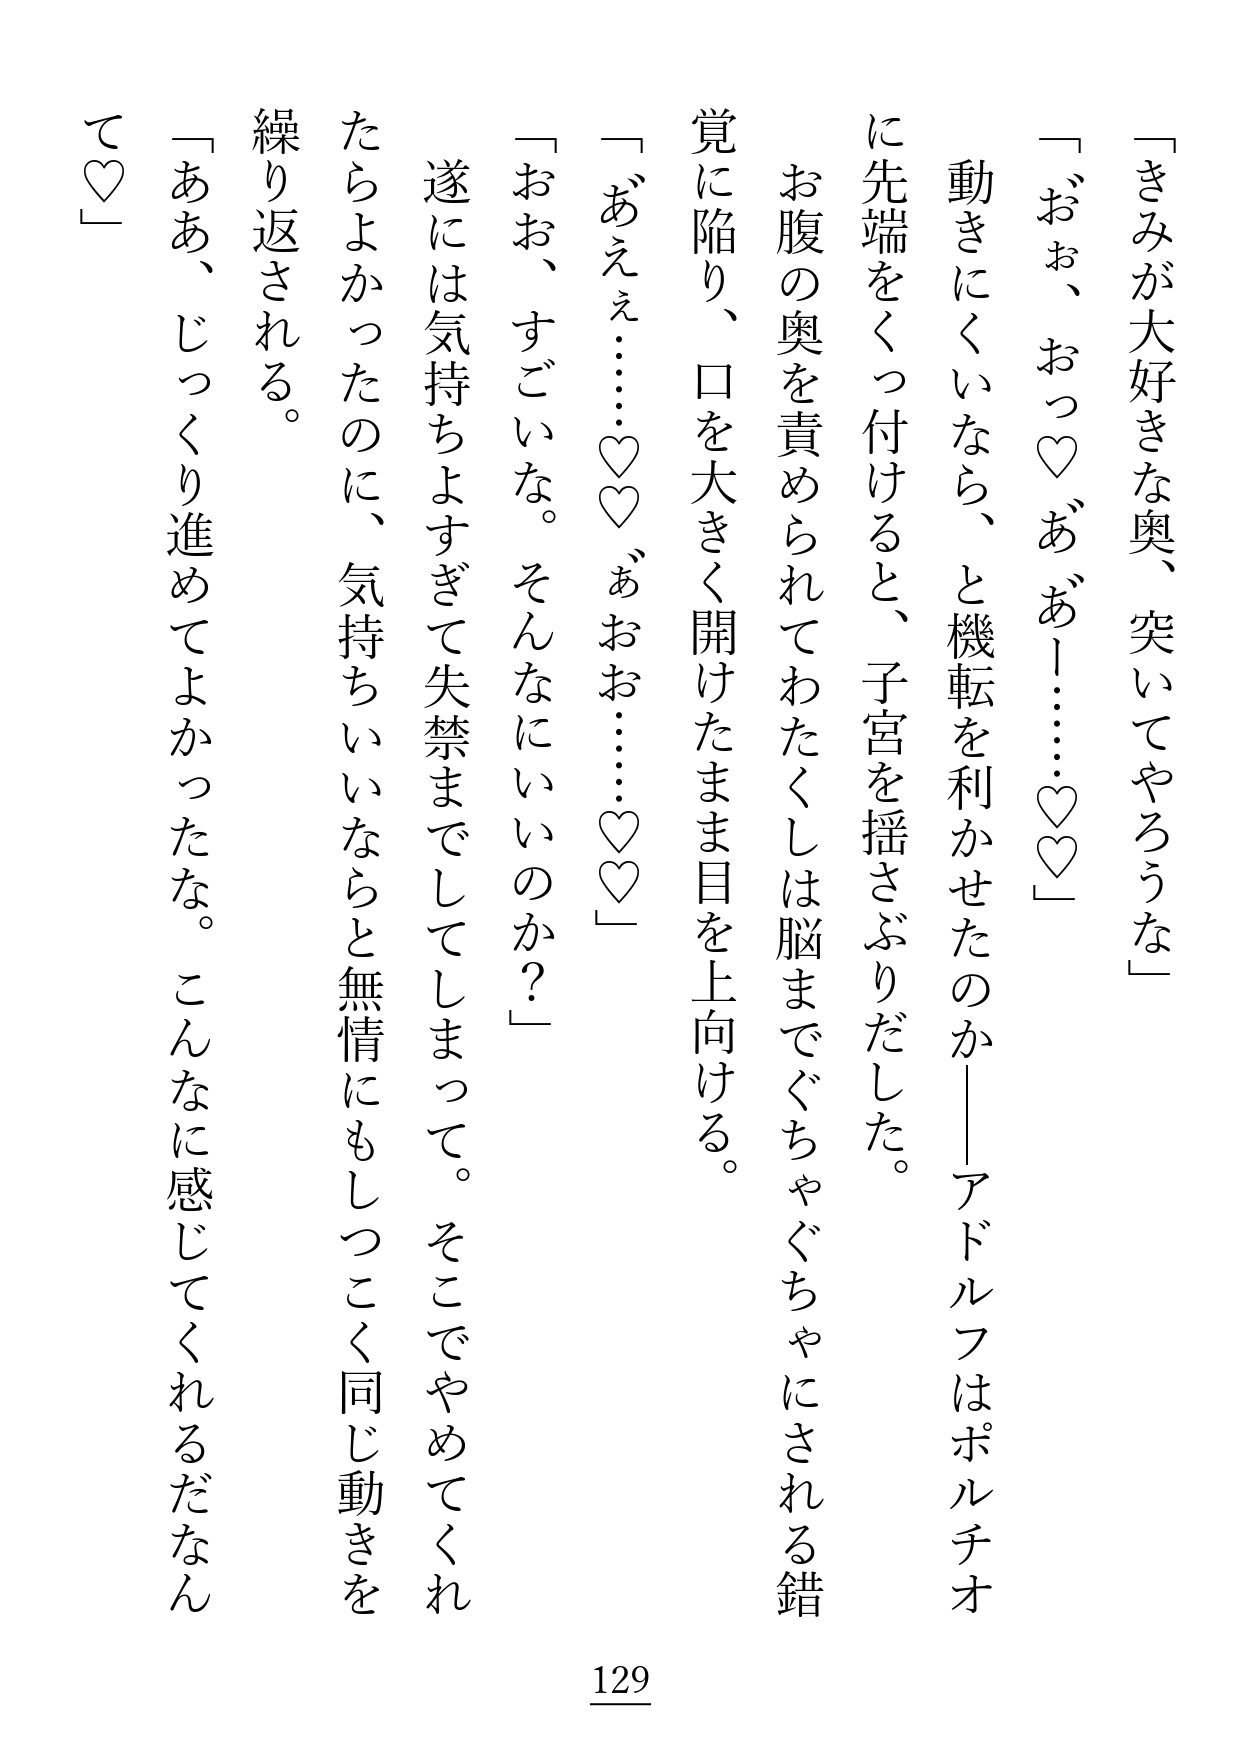 「きみが大好きな奥、突いてやろうな」
「お゙ぉ、おっ♡あ゙あ゙ー……♡♡」
　動きにくいなら、と機転を利かせたのか――アドルフはポルチオ
に先端をくっ付けると、子宮を揺さぶりだした。
　お腹の奥を責められてわたくしは脳までぐちゃぐちゃにされる錯
覚に陥り、口を大きく開けたまま目を上向ける。
「あ゙えぇ……♡♡ぁ゙おお……♡♡」
「おお、すごいな。そんなにいいのか？」
　遂には気持ちよすぎて失禁までしてしまって。そこでやめてくれ
たらよかったのに、気持ちいいならと無情にもしつこく同じ動きを
繰り返される。
「ああ、じっくり進めてよかったな。こんなに感じてくれるだなん
て♡」
129